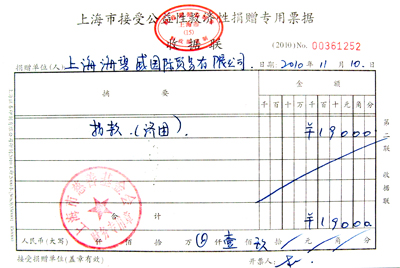 上海市接受公益性救济性捐赠专用票据
收据联
(2010) No. 00361252
捐赠单位(人): 上海洲碧威国际贸易有限公司. 日期: 2010年11月10日
摘要 金额
千百十万千百十元角分
捐款.(济困). ¥19000
第二联 收据联
合计 ¥19000
人民币(大写) 仟 佰 拾 万 仟壹佰玖拾 元 角 分
接受捐赠单位(盖章有效) 开票人: